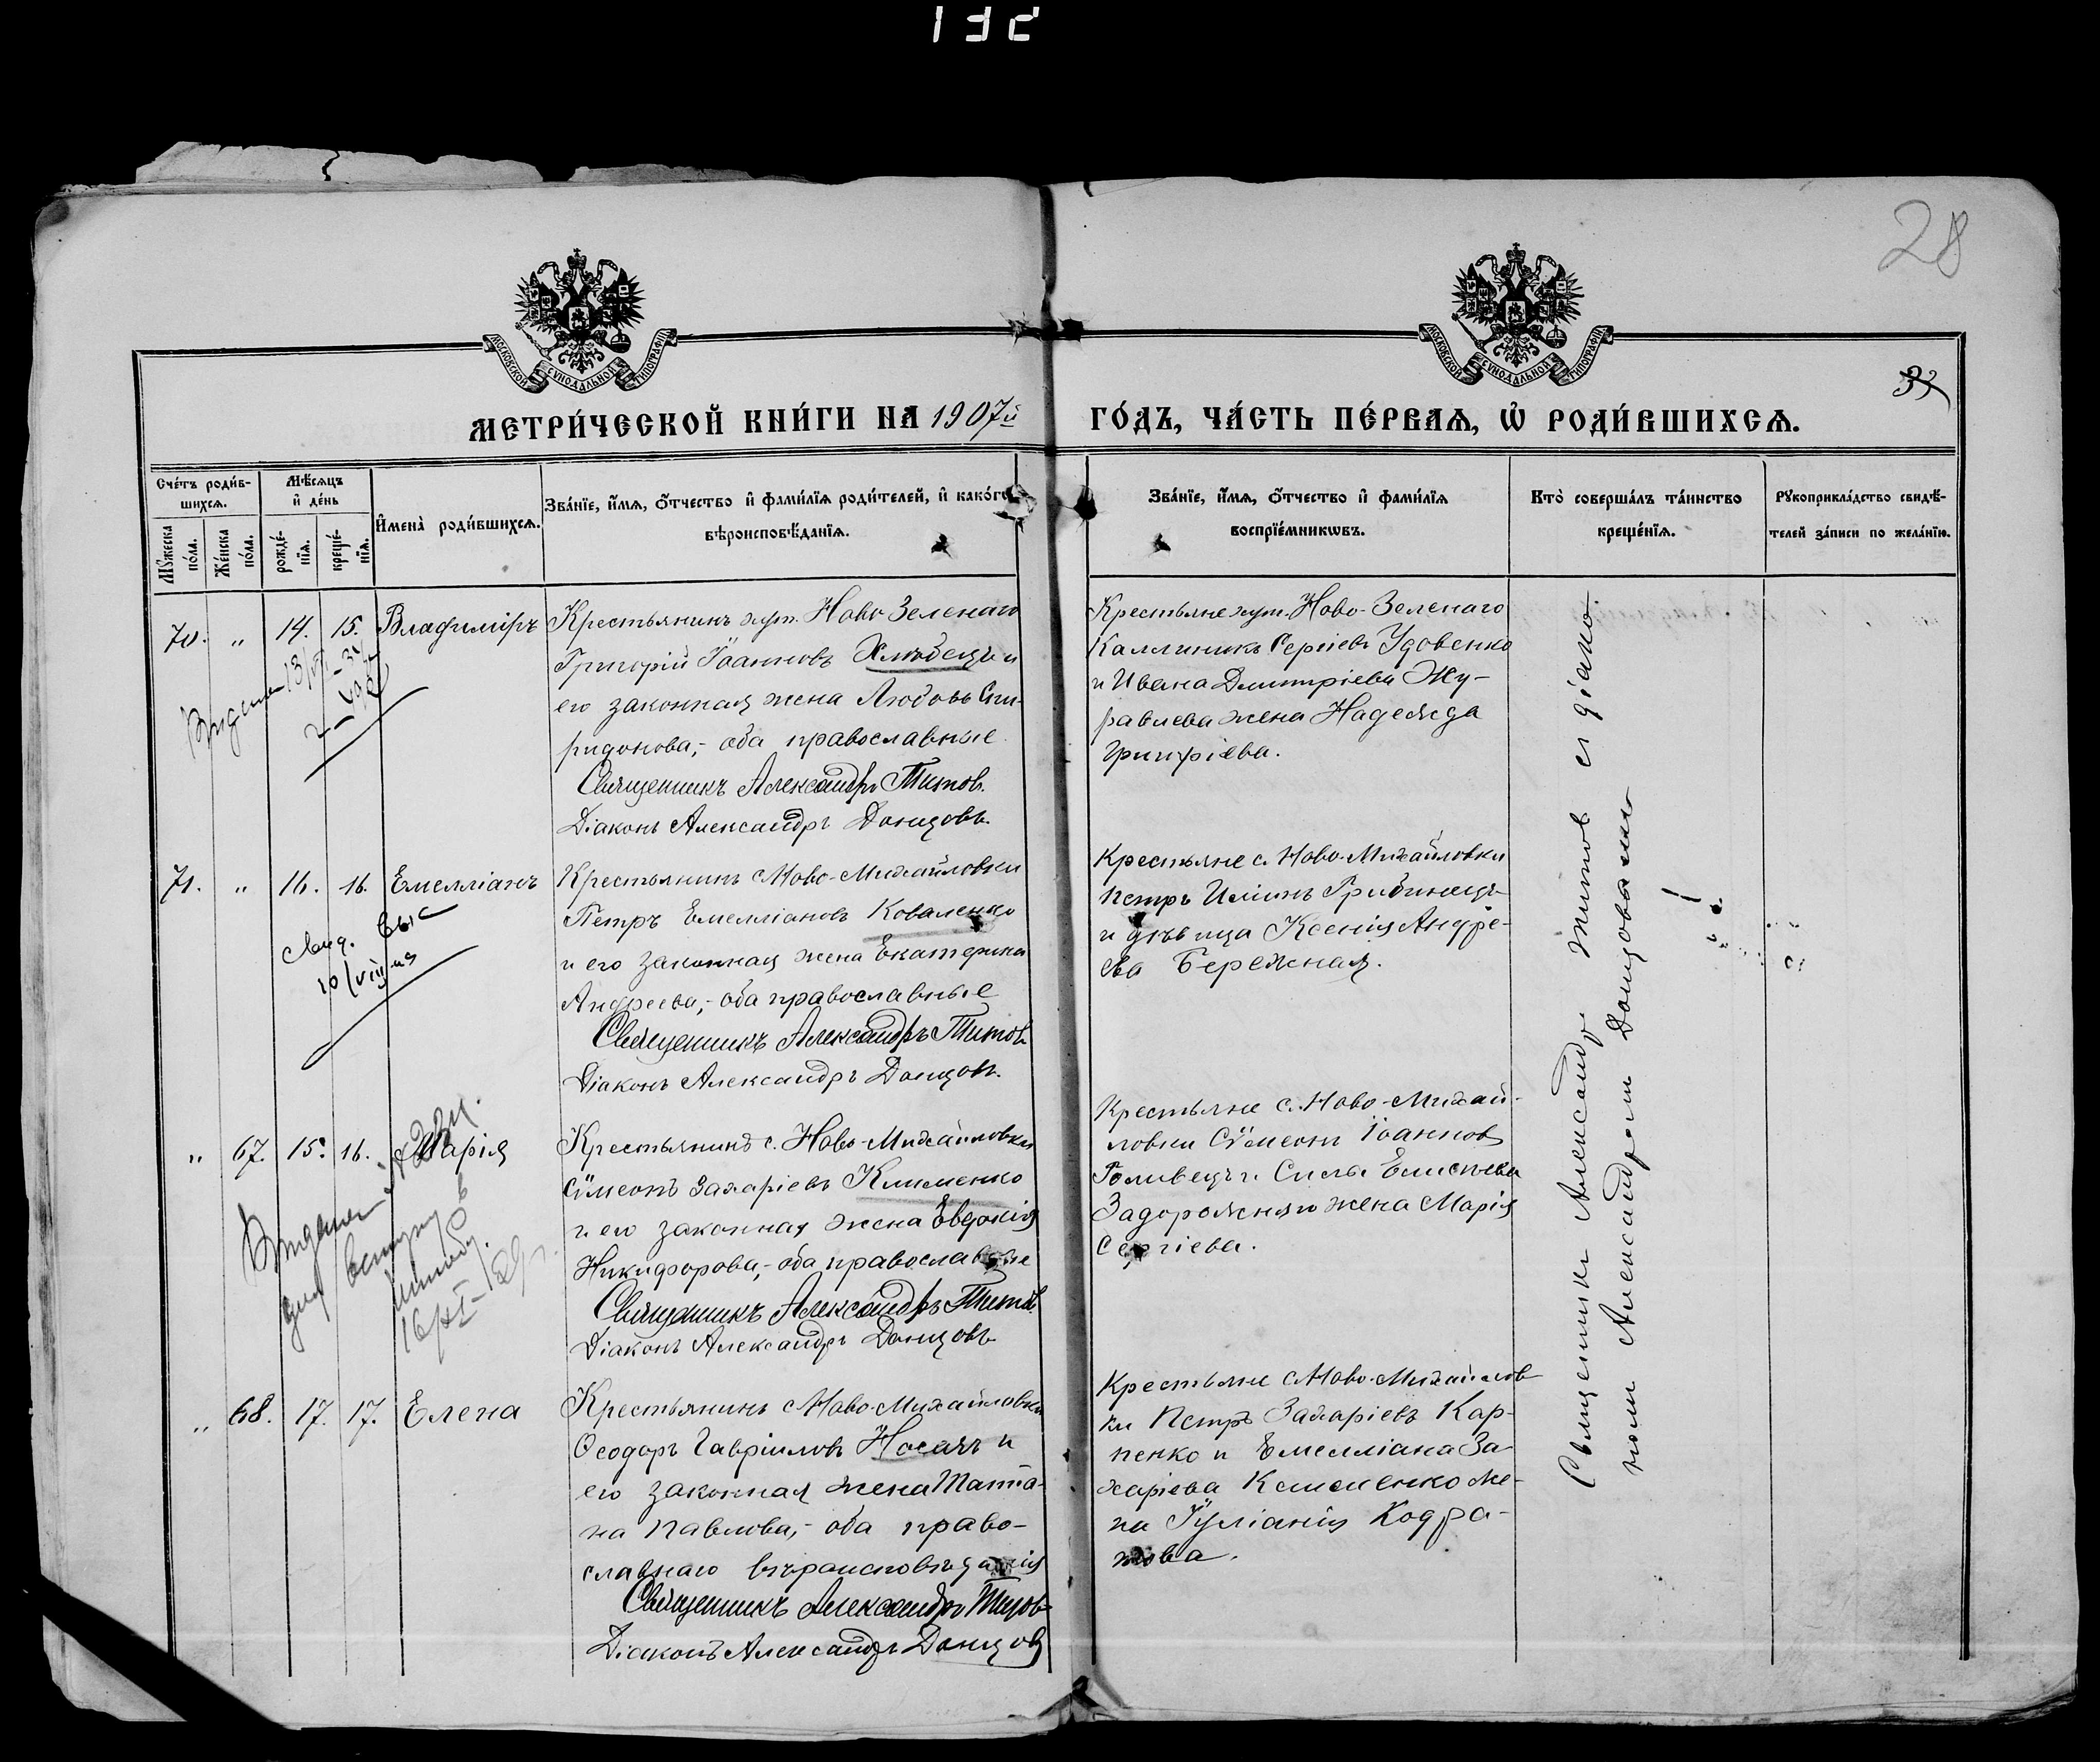 132
28
33
МОСКОВСКОЙ СУНОДАЛЬНОЙ ТИПОГРАФІИ
МОСКОВСКОЙ СУНОДАЛЬНОЙ ТИПОГРАФІИ
МЕТРИ́ЧЕСКОЙ КНИ́ГИ НА 1907й
ГО́ДЪ, ЧА́СТЬ ПЕ́РВАѦ, Ѡ РОДИ́ВШИХСѦ.
Сче́тъ роди́в-
шихсѧ.
Мꙋжеска по́ла.
Же́нска по́ла.
Мѣ́сѧцъ
и҆ де́нь
рожде́-нїѧ.
креще́-нїѧ.
И҆мена̀ роди́вшихсѧ.
Зва́нїе, и҆́мѧ, ѻ҆́тчество и҆ фами́лїѧ роди́телей, и҆ како́гѡ
вѣроисповѣ́данїѧ.
Зва́нїе, и҆́мѧ, ѻ҆́тчество и҆ фами́лїѧ
воспрїе́мникѡвъ.
Кто̀ соверша́лъ та́инство
креще́нїѧ.
Рꙋкоприкла́дство свидѣ́-
телей за́писи по жела́нїю.
70. " 14. 15. Владиміръ
Крестьянинъ хут. Ново-Зеленаго
Григорій Іоанновъ Хлѣбецъ и
его законная жена Любовь Спи-
ридонова,- оба православные
Священникъ Александръ Титов.
Діаконъ Александръ Донцовъ.
Крестьяне хут. Ново-Зеленаго
Каллиникъ Сергіевъ Удовенко
и Ивана Димитріева Жу-
равлева жена Надежда
Григоріева.
71. " 16. 16. Емелліанъ
свид. выс
10/VIII
Крестьянинъ с. Ново-Михайловки
Петръ Емелліановъ Коваленко
и его законная жена Екатерина
Андреева,- оба православные
Священникъ Александръ Титов
Діаконъ Александръ Донцовъ.
Крестьяне с. Ново-Михайловки
Петръ Иліинъ Грибинецъ
и дѣвица Ксенія Андре-
ева Бережная.
" 67. 15. 16. Марія
Крестьянинъ с. Ново-Михайловки
Сѵмеонъ Захаріевъ Клименко
и его законная жена Евдокія
Никифорова,- оба православные
Священникъ Александръ Титов.
Діаконъ Александръ Донцовъ
Крестьяне с. Ново-Михай-
ловки Сѵмеонъ Іоаннов
Голивецъ и Силы Елисѣева
Задорожняго жена Марія
Сергіева.
" 68. 17. 17. Елена
Крестьянинъ с. Ново-Михайловки
Ѳеодоръ Гавріиловъ Носачъ и
его законная жена Татіа-
на Павлова,- оба право-
славнаго вѣроисповѣданія
Священникъ Александръ Титов
Діаконъ Александръ Донцовъ
Крестьяне с. Ново-Михайлов
ки Петръ Захаріевъ Кар-
пенко и Емелліана За-
харіева Клименко же-
на Іуліанія Кодра-
това.
Священникъ Александръ Титов с діако-
номъ Александромъ Донцовымъ